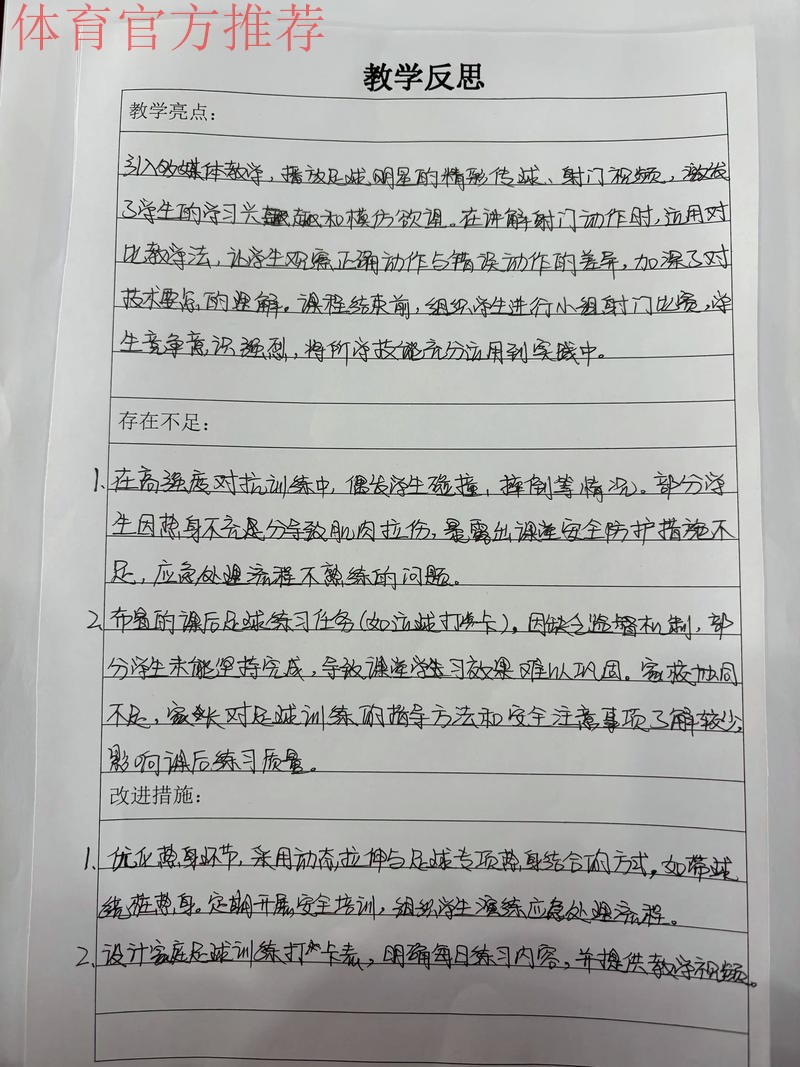 体育官方推荐
教学反思
教学亮点：
引入多媒体教学，播放足球明星的精彩传球、射门视频，激发
了学生的学习兴趣和模仿欲望。在讲解射门动作时，运用对
比教学法，让学生观察正确动作与错误动作的差异，加深了对
技术要点的理解。课程结束前，组织学生进行小组射门比赛，学
生竞争意识强烈，将所学技能充分运用到实践中。
存在不足：
1、在高强度对抗训练中，偶发学生碰撞，摔倒等情况。部分学
生因热身不充足分导致肌肉拉伤，暴露出课堂安全防护措施不
足，应急处理流程不熟练的问题。
2、布置的课后足球练习任务（如运球打卡）。因缺乏监督机制，部
分学生未能坚持完成，导致课堂学习效果难以巩固。家校协同
不足，家长对足球训练的指导方法和安全注意事项了解较少，
影响课后练习质量。
改进措施：
1、优化热身环节，采用动态拉伸与足球专项热身结合的方式，如带球
绕桩热身。定期开展安全培训，组织学生演练应急处理流程。
2、设计家庭足球训练打卡表，明确每日练习内容，并提供教学视频。